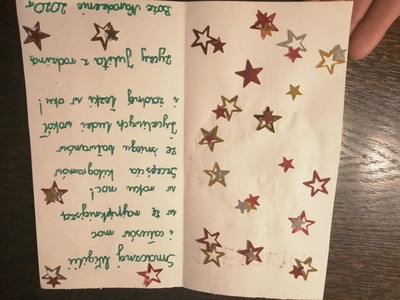 Smacznej Wigilii
i całusów moc
w tę najpiękniejszą
w roku noc!
Szczęścia kilogramów
ze śniegu bałwanów
Życzliwych ludzi wokół
i żadnej łezki w oku!
życzy Julita z rodziną
Boże Narodzenie 2020r